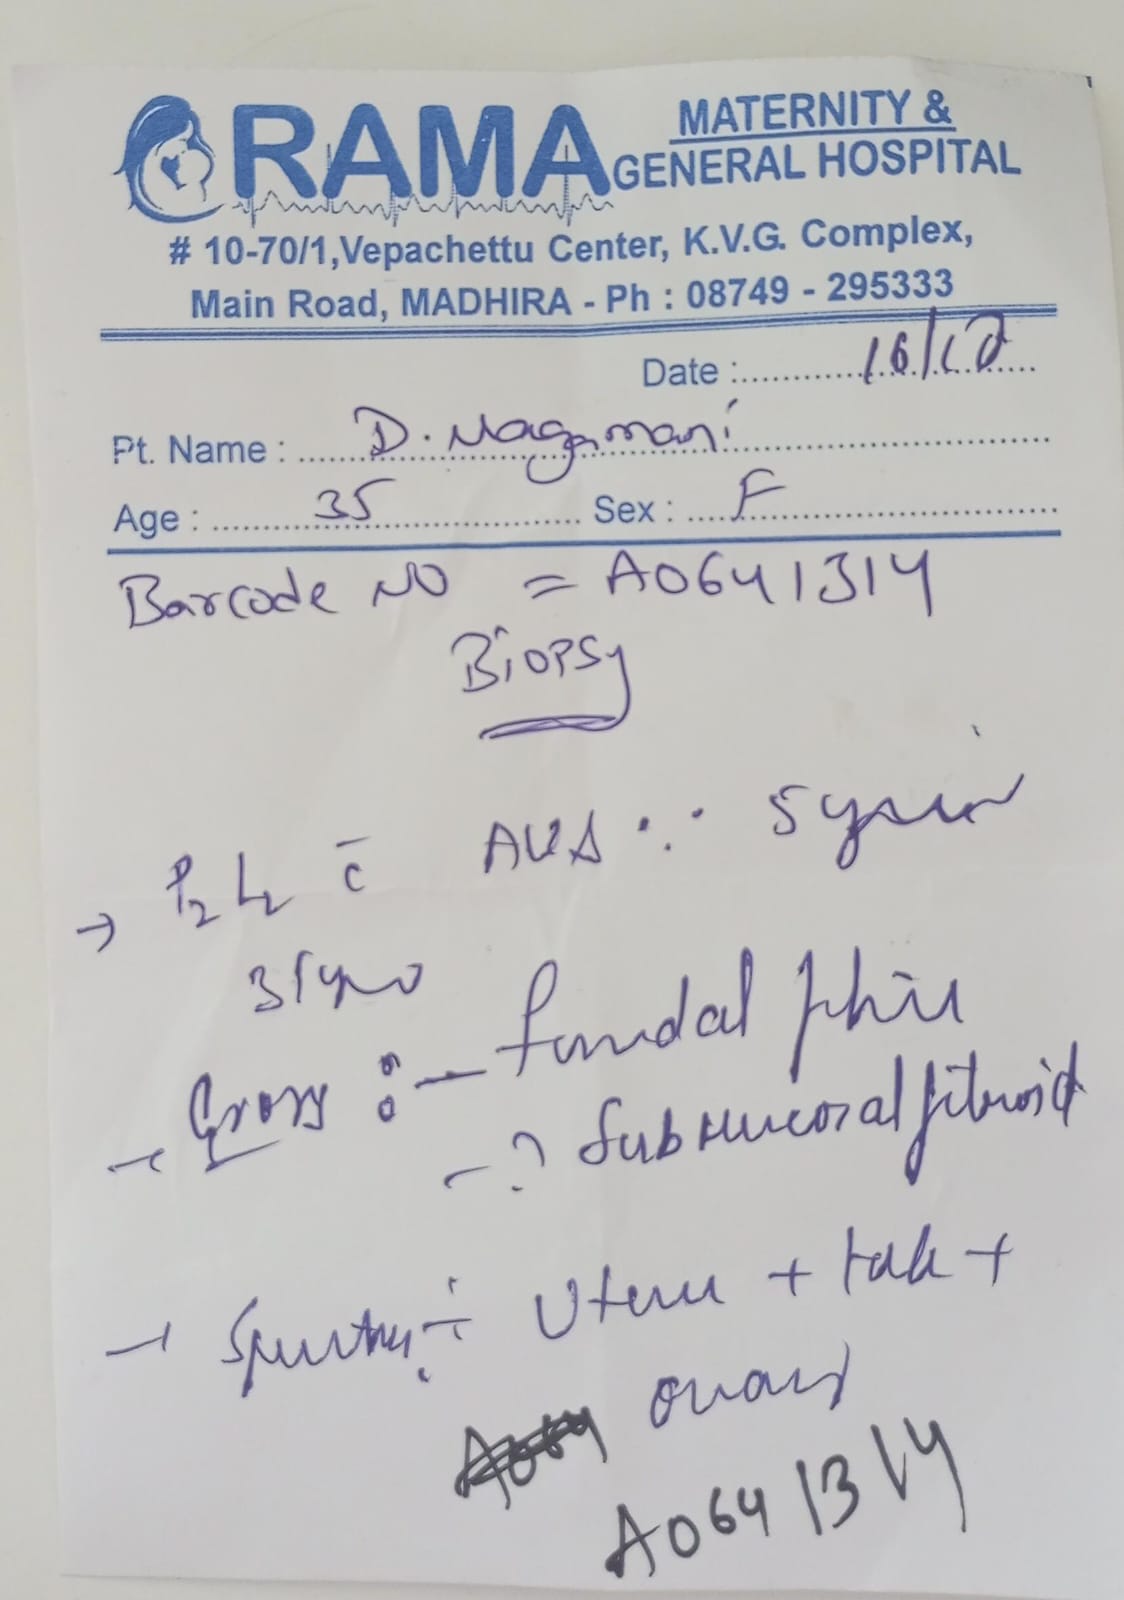 RAMA MATERNITY &
GENERAL HOSPITAL
# 10-70/1,Vepachettu Center, K.V.G. Complex,
Main Road, MADHIRA - Ph : 08749 - 295333
Date : 16/12
Pt. Name : D. Nagamani
Age : 35 Sex : F
Barcode NO = A0641314
Biopsy
→ P2 L2 c̄ AUB ∵ 5 years
Gross :- fundal
- ? Submucosal fibroid
Uterus + tube +
ovary
A0641314